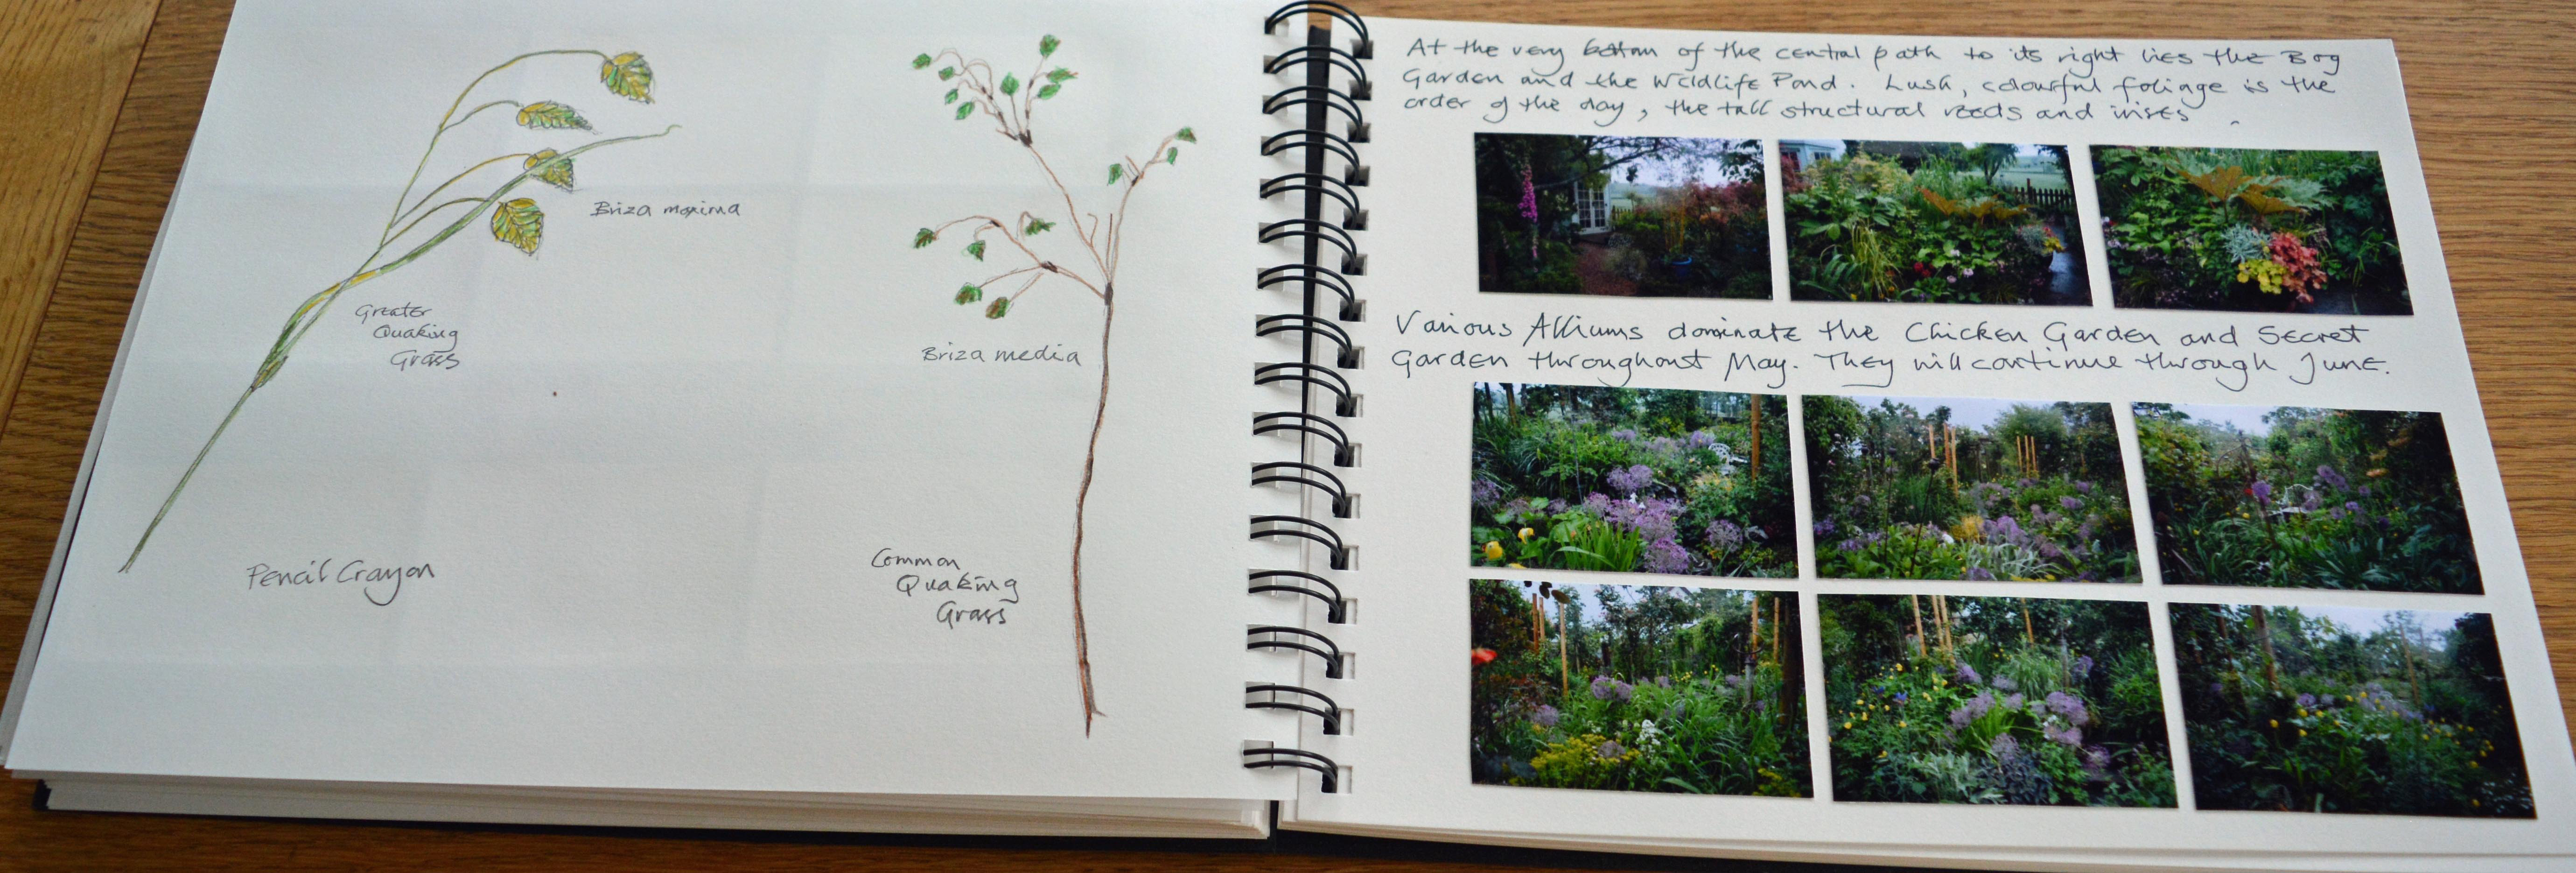 Briza maxima
Greater
Quaking
Grass
Pencil Crayon
Briza media
Common
Quaking
Grass
At the very bottom of the central path to its right lies the Bog
Garden and the Wildlife Pond. Lush, colourful foliage is the
order of the day, the tall structural reeds and irises .
Various Alliums dominate the Chicken Garden and Secret
Garden throughout May. They will continue through June.